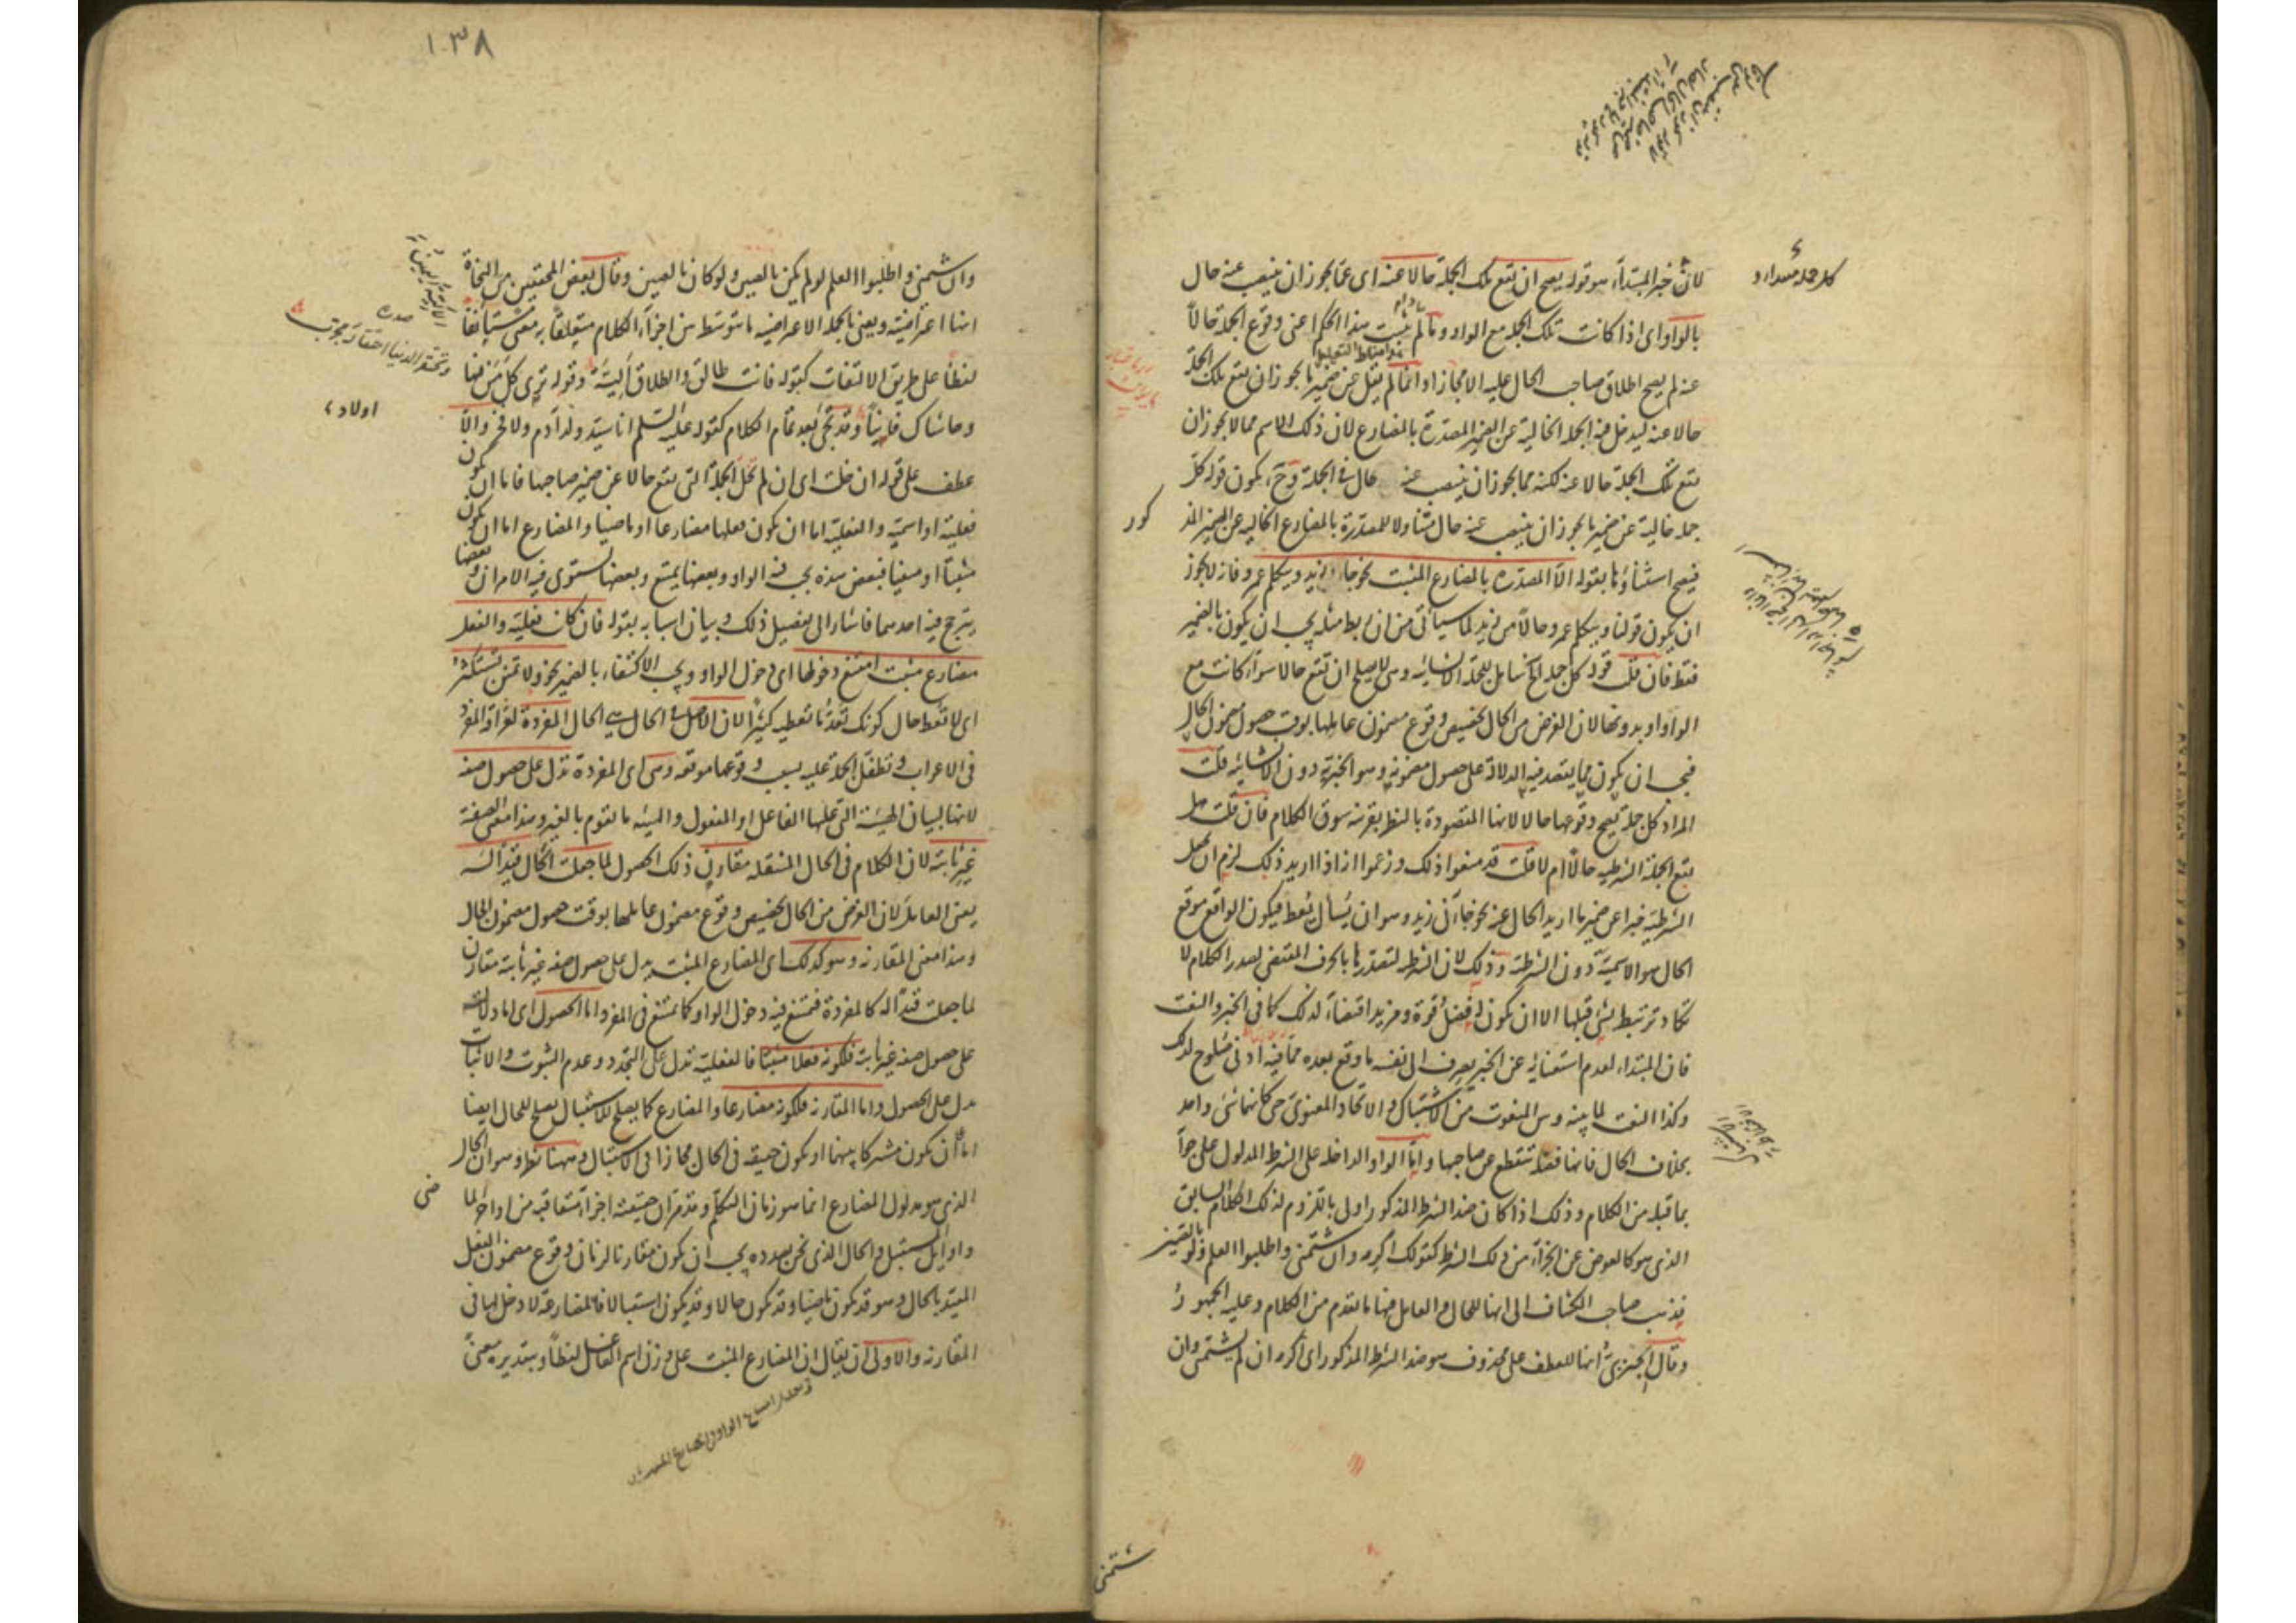 لان خبر المبتدأ، هو قوله يصح ان تقع تلك الجملة حالا عنه اى عما يجوز ان ينتصب عنه حال
بالواو اى اذا كانت تلك الجملة مع الواو وما لم يثبت هذا الحكم اعنى وقوع الجملة حالاً
عنه لم يصح اطلاق صاحب الحال عليه الا مجازا وانما لم يقل عن ضمير ما يجوز ان يقع تلك الجملة
حالا عنه ليدخل فيه الجملة الخالية عن الضمير المصدرة بالمضارع لان ذلك الاسم مما لا يجوز ان
تقع تلك الجملة حالا عنه لكنه مما يجوز ان ينتصب عنه حال فى الجملة وح يكون قوله كل
جملة خالية عن ضمير ما يجوز ان ينتصب عنه حال متناولا للمصدرة بالمضارع الخالية عن الضمير المذ
كور
فيصح استثناؤها بقوله الا المصدرة بالمضارع المثبت نحو جاء زيد ويتكلم عمرو فانه لا يجوز
ان يكون قولنا ويتكلم عمرو حالاً من زيد لما سيأتى من ان ربط مثله يجب ان يكون بالضمير
فقط فان قلت قوله كل جملة الخ شامل للجملة الانشائية وهى لا يصلح ان تقع حالا سواء كانت مع
الواو او بدونها لان الغرض من الحال تخصيص وقوع مضمون عاملها بوقت حصول مضمون الحال
فيجب ان يكون مما يقصد فيه الدلالة على حصول مضمونه وهو الخبرية دون الانشائية قلت
المراد كل جملة يصح وقوعها حالا لانها المقصودة بالنظر بقرينة سوق الكلام فان قلت هل
تقع الجملة الشرطية حالاً ام لا قلت قد منعوا ذلك وزعموا انه اذا اريد ذلك لزم ان تجعل
الشرطية خبرا عن ضمير ما اريد الحال عنه نحو جاءنى زيد وهو ان يُسأل يُعط فيكون الواقع موقع
الحال هو الاسمية دون الشرطية وذلك لان الشرطية لتصدرها بالحرف المقتضى لصدر الكلام لا
تكاد ترتبط بشئ قبلها الا ان يكون له فضل قوة ومزيد اقتضاء لذلك كما فى الخبر والنعت
فان المبتداء لعدم استغنائه عن الخبر يصرف الى نفسه ما وقع بعده مما فيه ادنى صلوح لذلك
وكذا النعت لما بينه وبين المنعوت من الاشتباك والاتحاد المعنوى حتى كانهما شئ واحد
بخلاف الحال فانها فضلة تنقطع عن صاحبها واما الواو الداخلة على الشرط المدلول على جوابه
بما قبله من الكلام وذلك اذا كان ضد الشرط المذكور اولى باللزوم لذلك الكلام السابق
الذى هو كالعوض عن الجزاء من ذلك الشرط كقولك اكرمه وان شتمنى واطلبوا العلم ولو بالصين
فذهب صاحب الكشاف الى انها للحال والعامل فيها ما تقدم من الكلام وعليه الجمهور
وقال الجنزى انها للعطف على محذوف هو ضد الشرط المذكور اى اكرمه ان لم يشتمنى وان
شتمنى
١٣٨
وان شتمنى واطلبوا العلم لو لم يكن بالصين ولو كان بالصين وقال بعض المحققين من النحاة
انها اعتراضية ويعنى بالجملة الاعتراضية ما تتوسط بين اجزاء الكلام متعلقاً به معنى مستأنفاً
لفظاً على طريق الالتفات كقوله فانت طالق والطلاق اليّة وقوله ترى كل من فيها
وحاشاك فانياً وقد تجئ بعد تمام الكلام كقوله عليه السلم انا سيد ولد آدم ولا فخر والا
اولاد
عطف على قوله ان خلت اى ان لم تخل الجملة التى تقع حالا عن ضمير صاحبها فاما ان يكون
فعلية او اسمية والفعلية اما ان يكون فعلها مضارعا او ماضيا والمضارع اما ان يكون
مثبتا او منفيا فبعض هذه يجب فيه الواو وبعضها يمتنع وبعضها يستوى فيه الامران وبعضها
يترجح فيه احدهما فاشار الى تفصيل ذلك وبيان اسبابه بقوله فان كان فعلية والفعل
مضارع مثبت امتنع دخولها اى دخول الواو ويجب الاكتفاء بالضمير نحو ولا تمنن تستكثر
اى لا تعط حال كونك تعد ما تعطيه كثيراً لان الاصل فى الحال هى الحال المفردة لعراقة المفرد
فى الاعراب وتطفل الجملة عليه بسبب وقوعها موقعه وهى اى المفردة تدل على حصول صفة
لانها لبيان الهيئة التى عليها الفاعل او المفعول والهيئة ما تقوم بالغير وهذا معنى الصفة
غير ثابتة لان الكلام فى الحال المنتقلة مقارن ذلك الحصول لما جعلت الحال قيداً له
يعنى العامل لان الغرض من الحال تخصيص وقوع مضمون عاملها بوقت حصول مضمون الحال
وهذا معنى المقارنة وهو كذلك اى المضارع المثبت يدل على حصول صفة غير ثابتة مقارن
لما جعلت قيداً له كالمفردة فتمتنع فيه دخول الواو كما يمتنع فى المفرد اما الحصول اى اما دلالته
على حصول صفة غير ثابتة فلكونه فعلا مثبتا فالفعلية تدل على التجدد وعدم الثبوت والاثبات
يدل على الحصول واما المقارنة فلكونه مضارعا والمضارع كما يصلح للاستقبال يصلح للحال ايضا
اما ان يكون مشتركا بينهما او يكون حقيقة فى الحال مجازا فى الاستقبال وههنا نظر وهو ان الحال
الذى هو مدلول المضارع انما هو زمان التكلم وقد مر ان حقيقته اجزاء متعاقبة من اواخر الما
ضى
واوايل المستقبل والحال الذى نحن بصدده يجب ان يكون مقارنا لزمان وقوع مضمون الفعل
المقيد بالحال وهو قد يكون ماضيا وقد يكون حالا وقد يكون استقبالا فالمضارعة لا دخل لها فى
المقارنة والاولى ان يقال ان المضارع المثبت على وزن اسم الفاعل لفظاً وبتقديره معنىً